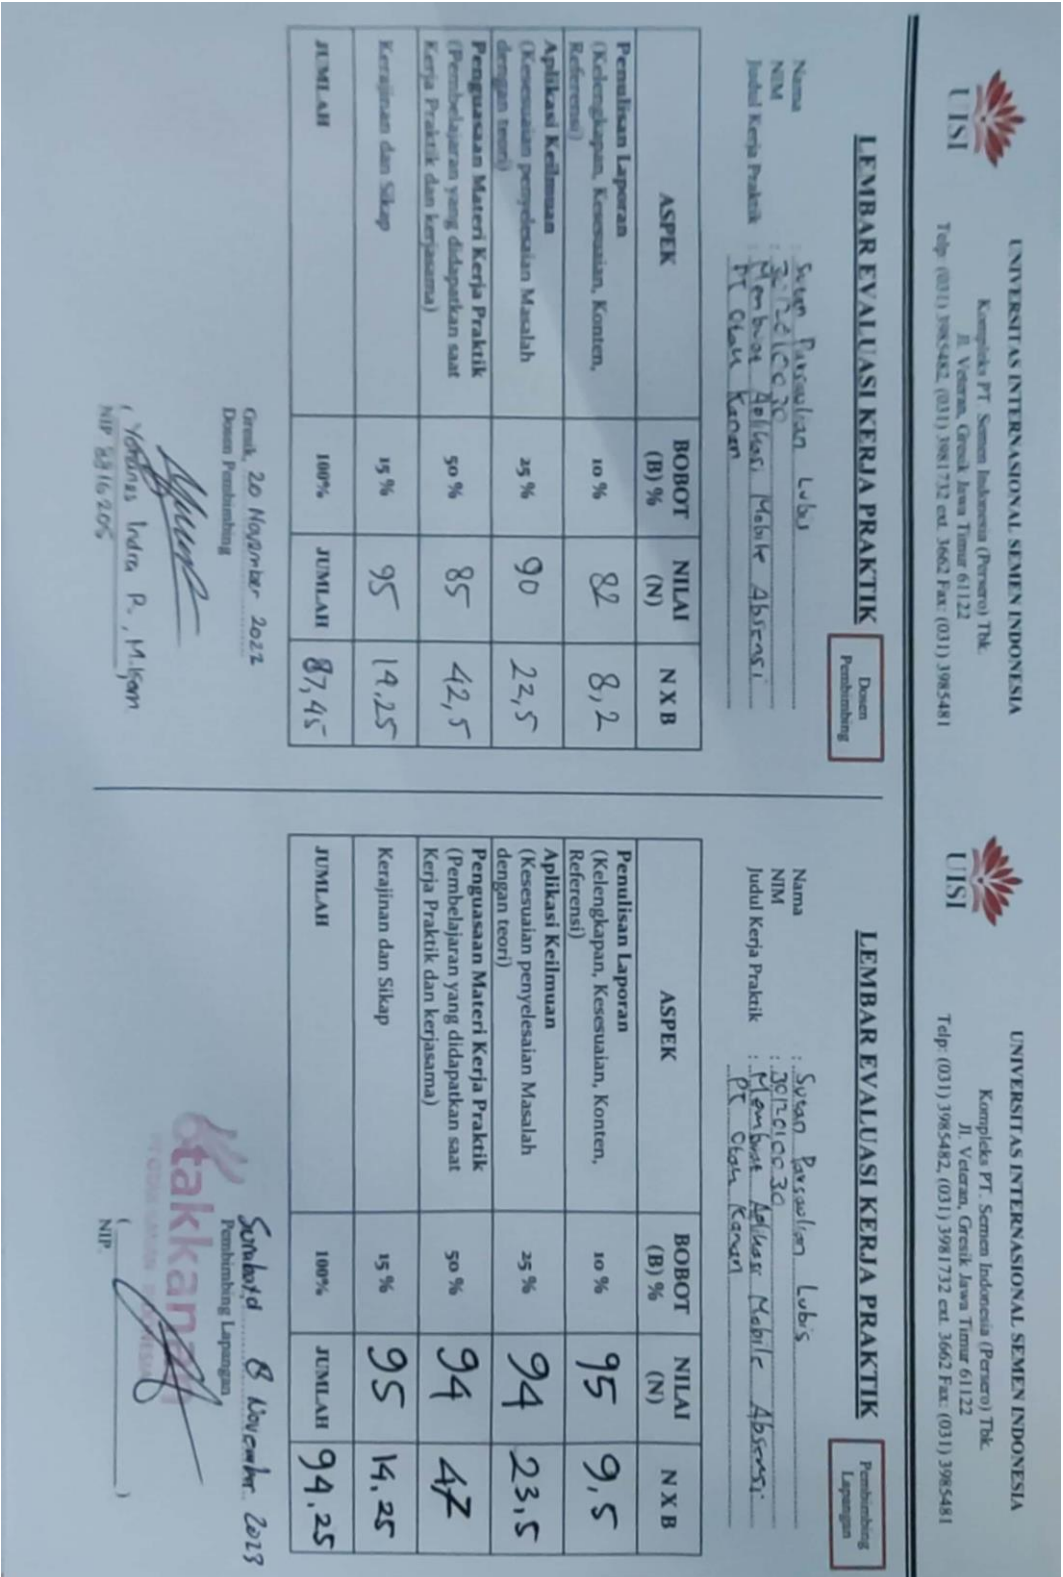 UISI
UNIVERSITAS INTERNASIONAL SEMEN INDONESIA
Kompleks PT. Semen Indonesia (Persero) Tbk.
Jl. Veteran, Gresik Jawa Timur 61122
Telp: (031) 3985482, (031) 3981732 ext. 3662 Fax: (031) 3985481
LEMBAR EVALUASI KERJA PRAKTIK
Dosen
Pembimbing
Nama : Sutan Parsaulian Lubis
NIM :
Judul Kerja Praktik : Membuat Aplikasi Mobile Absensi
PT Otak Kanan
ASPEK BOBOT (B) % NILAI (N) N X B
Penulisan Laporan
(Kelengkapan, Kesesuaian, Konten,
Referensi) 10 % 82 8,2
Aplikasi Keilmuan
(Kesesuaian penyelesaian Masalah
dengan teori) 25 % 90 22,5
Penguasaan Materi Kerja Praktik
(Pembelajaran yang didapatkan saat
Kerja Praktik dan kerjasama) 50 % 85 42,5
Kerajinan dan Sikap 15 % 95 14,25
JUMLAH 100% JUMLAH 87,45
Gresik, 20 November 2022
Dosen Pembimbing
( Yohanes Indra P., M.Kom
NIP. 8816205
UISI
UNIVERSITAS INTERNASIONAL SEMEN INDONESIA
Kompleks PT. Semen Indonesia (Persero) Tbk.
Jl. Veteran, Gresik Jawa Timur 61122
Telp: (031) 3985482, (031) 3981732 ext. 3662 Fax: (031) 3985481
LEMBAR EVALUASI KERJA PRAKTIK
Pembimbing
Lapangan
Nama : Sutan Parsaulian Lubis
NIM : 3012010030
Judul Kerja Praktik : Membuat Aplikasi Mobile Absensi
PT Otak Kanan
ASPEK BOBOT (B) % NILAI (N) N X B
Penulisan Laporan
(Kelengkapan, Kesesuaian, Konten,
Referensi) 10 % 95 9,5
Aplikasi Keilmuan
(Kesesuaian penyelesaian Masalah
dengan teori) 25 % 94 23,5
Penguasaan Materi Kerja Praktik
(Pembelajaran yang didapatkan saat
Kerja Praktik dan kerjasama) 50 % 94 47
Kerajinan dan Sikap 15 % 95 14,25
JUMLAH 100% JUMLAH 94,25
8 November 2023
Pembimbing Lapangan
otakkanan
( )
NIP.